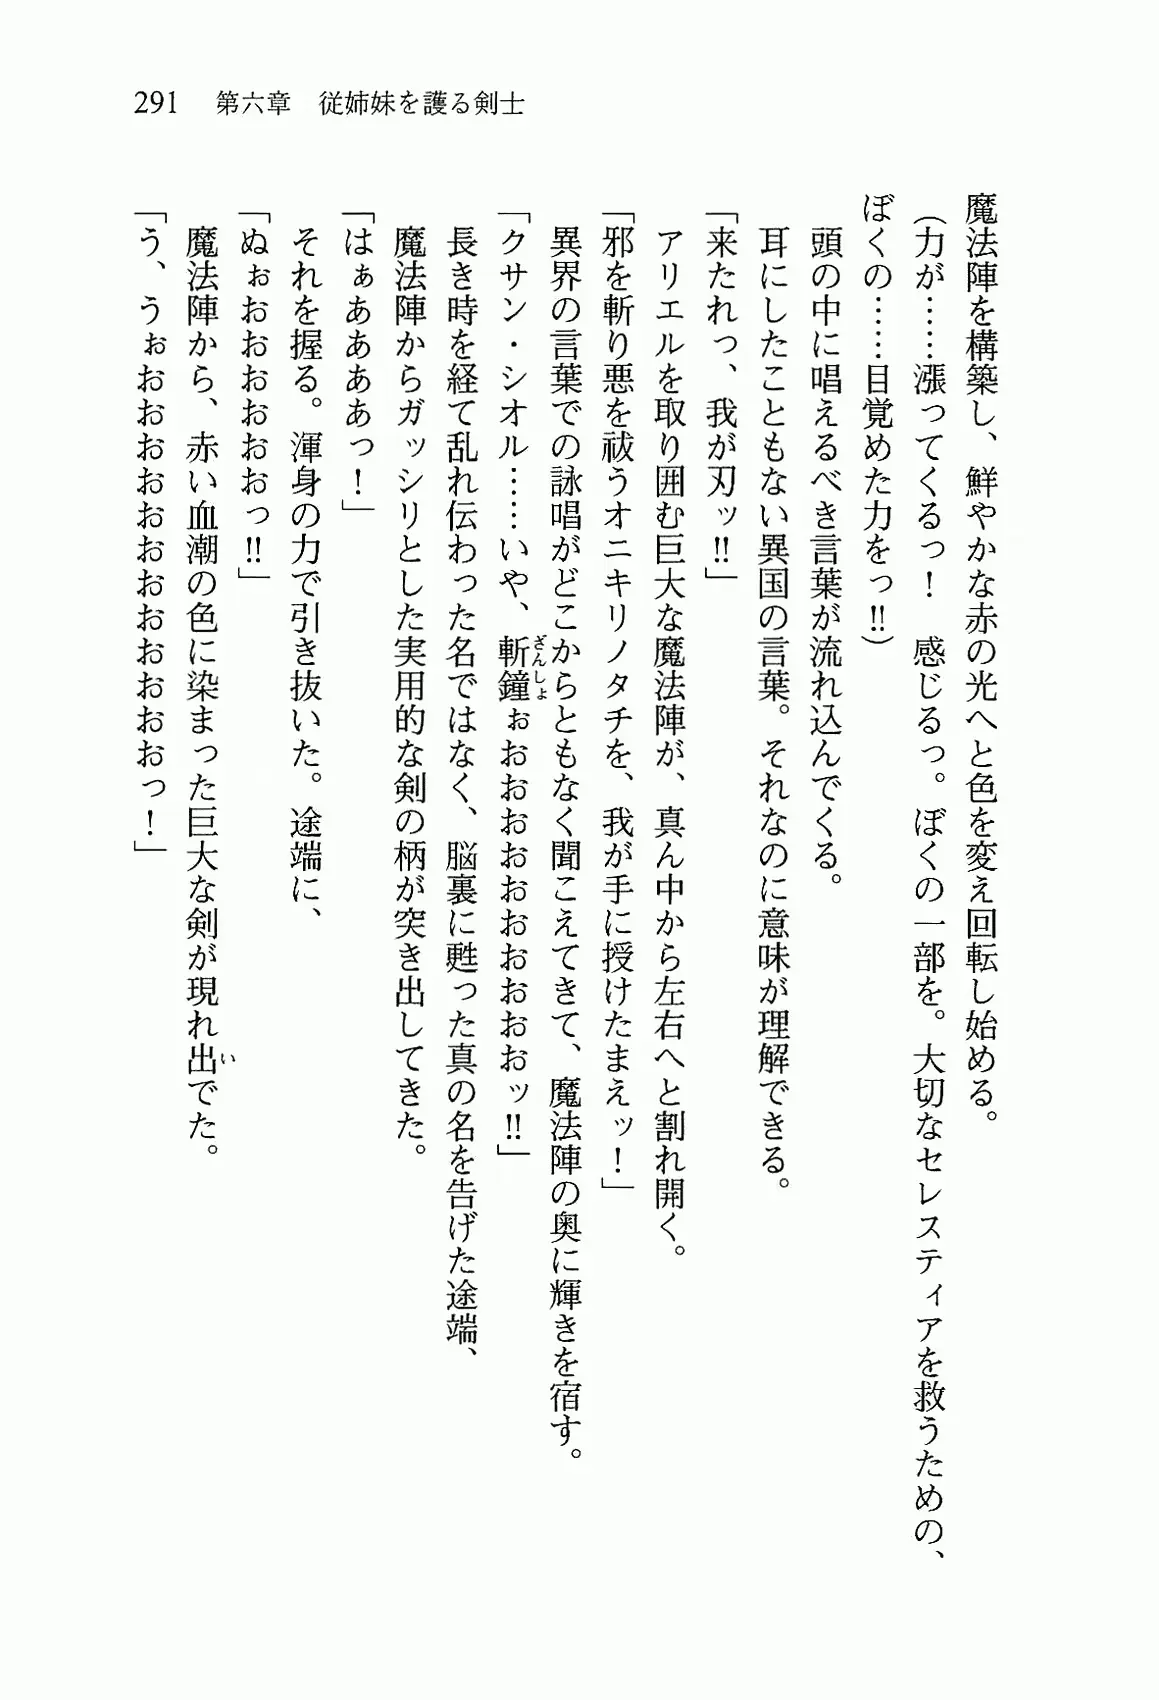 291 第六章 従姉妹を護る剣士
魔法陣を構築し、鮮やかな赤の光へと色を変え回転し始める。
（力が……漲ってくるっ！　感じるっ。ぼくの一部を。大切なセレスティアを救うための、
ぼくの……目覚めた力をっ!!）
　頭の中に唱えるべき言葉が流れ込んでくる。
　耳にしたこともない異国の言葉。それなのに意味が理解できる。
「来たれっ、我が刃ッ!!」
　アリエルを取り囲む巨大な魔法陣が、真ん中から左右へと割れ開く。
「邪を斬り悪を祓うオニキリノタチを、我が手に授けたまえッ！」
　異界の言葉での詠唱がどこからともなく聞こえてきて、魔法陣の奥に輝きを宿す。
「クサン・シオル……いや、斬鐘ぉおおおおおおおおおおッ!!」
ざんしょ
　長き時を経て乱れ伝わった名ではなく、脳裏に甦った真の名を告げた途端、
　魔法陣からガッシリとした実用的な剣の柄が突き出してきた。
「はぁああああっ！」
　それを握る。渾身の力で引き抜いた。途端に、
「ぬぉおおおおおおっ!!」
　魔法陣から、赤い血潮の色に染まった巨大な剣が現れ出でた。
い
「う、うぉおおおおおおおおおおおっ！」